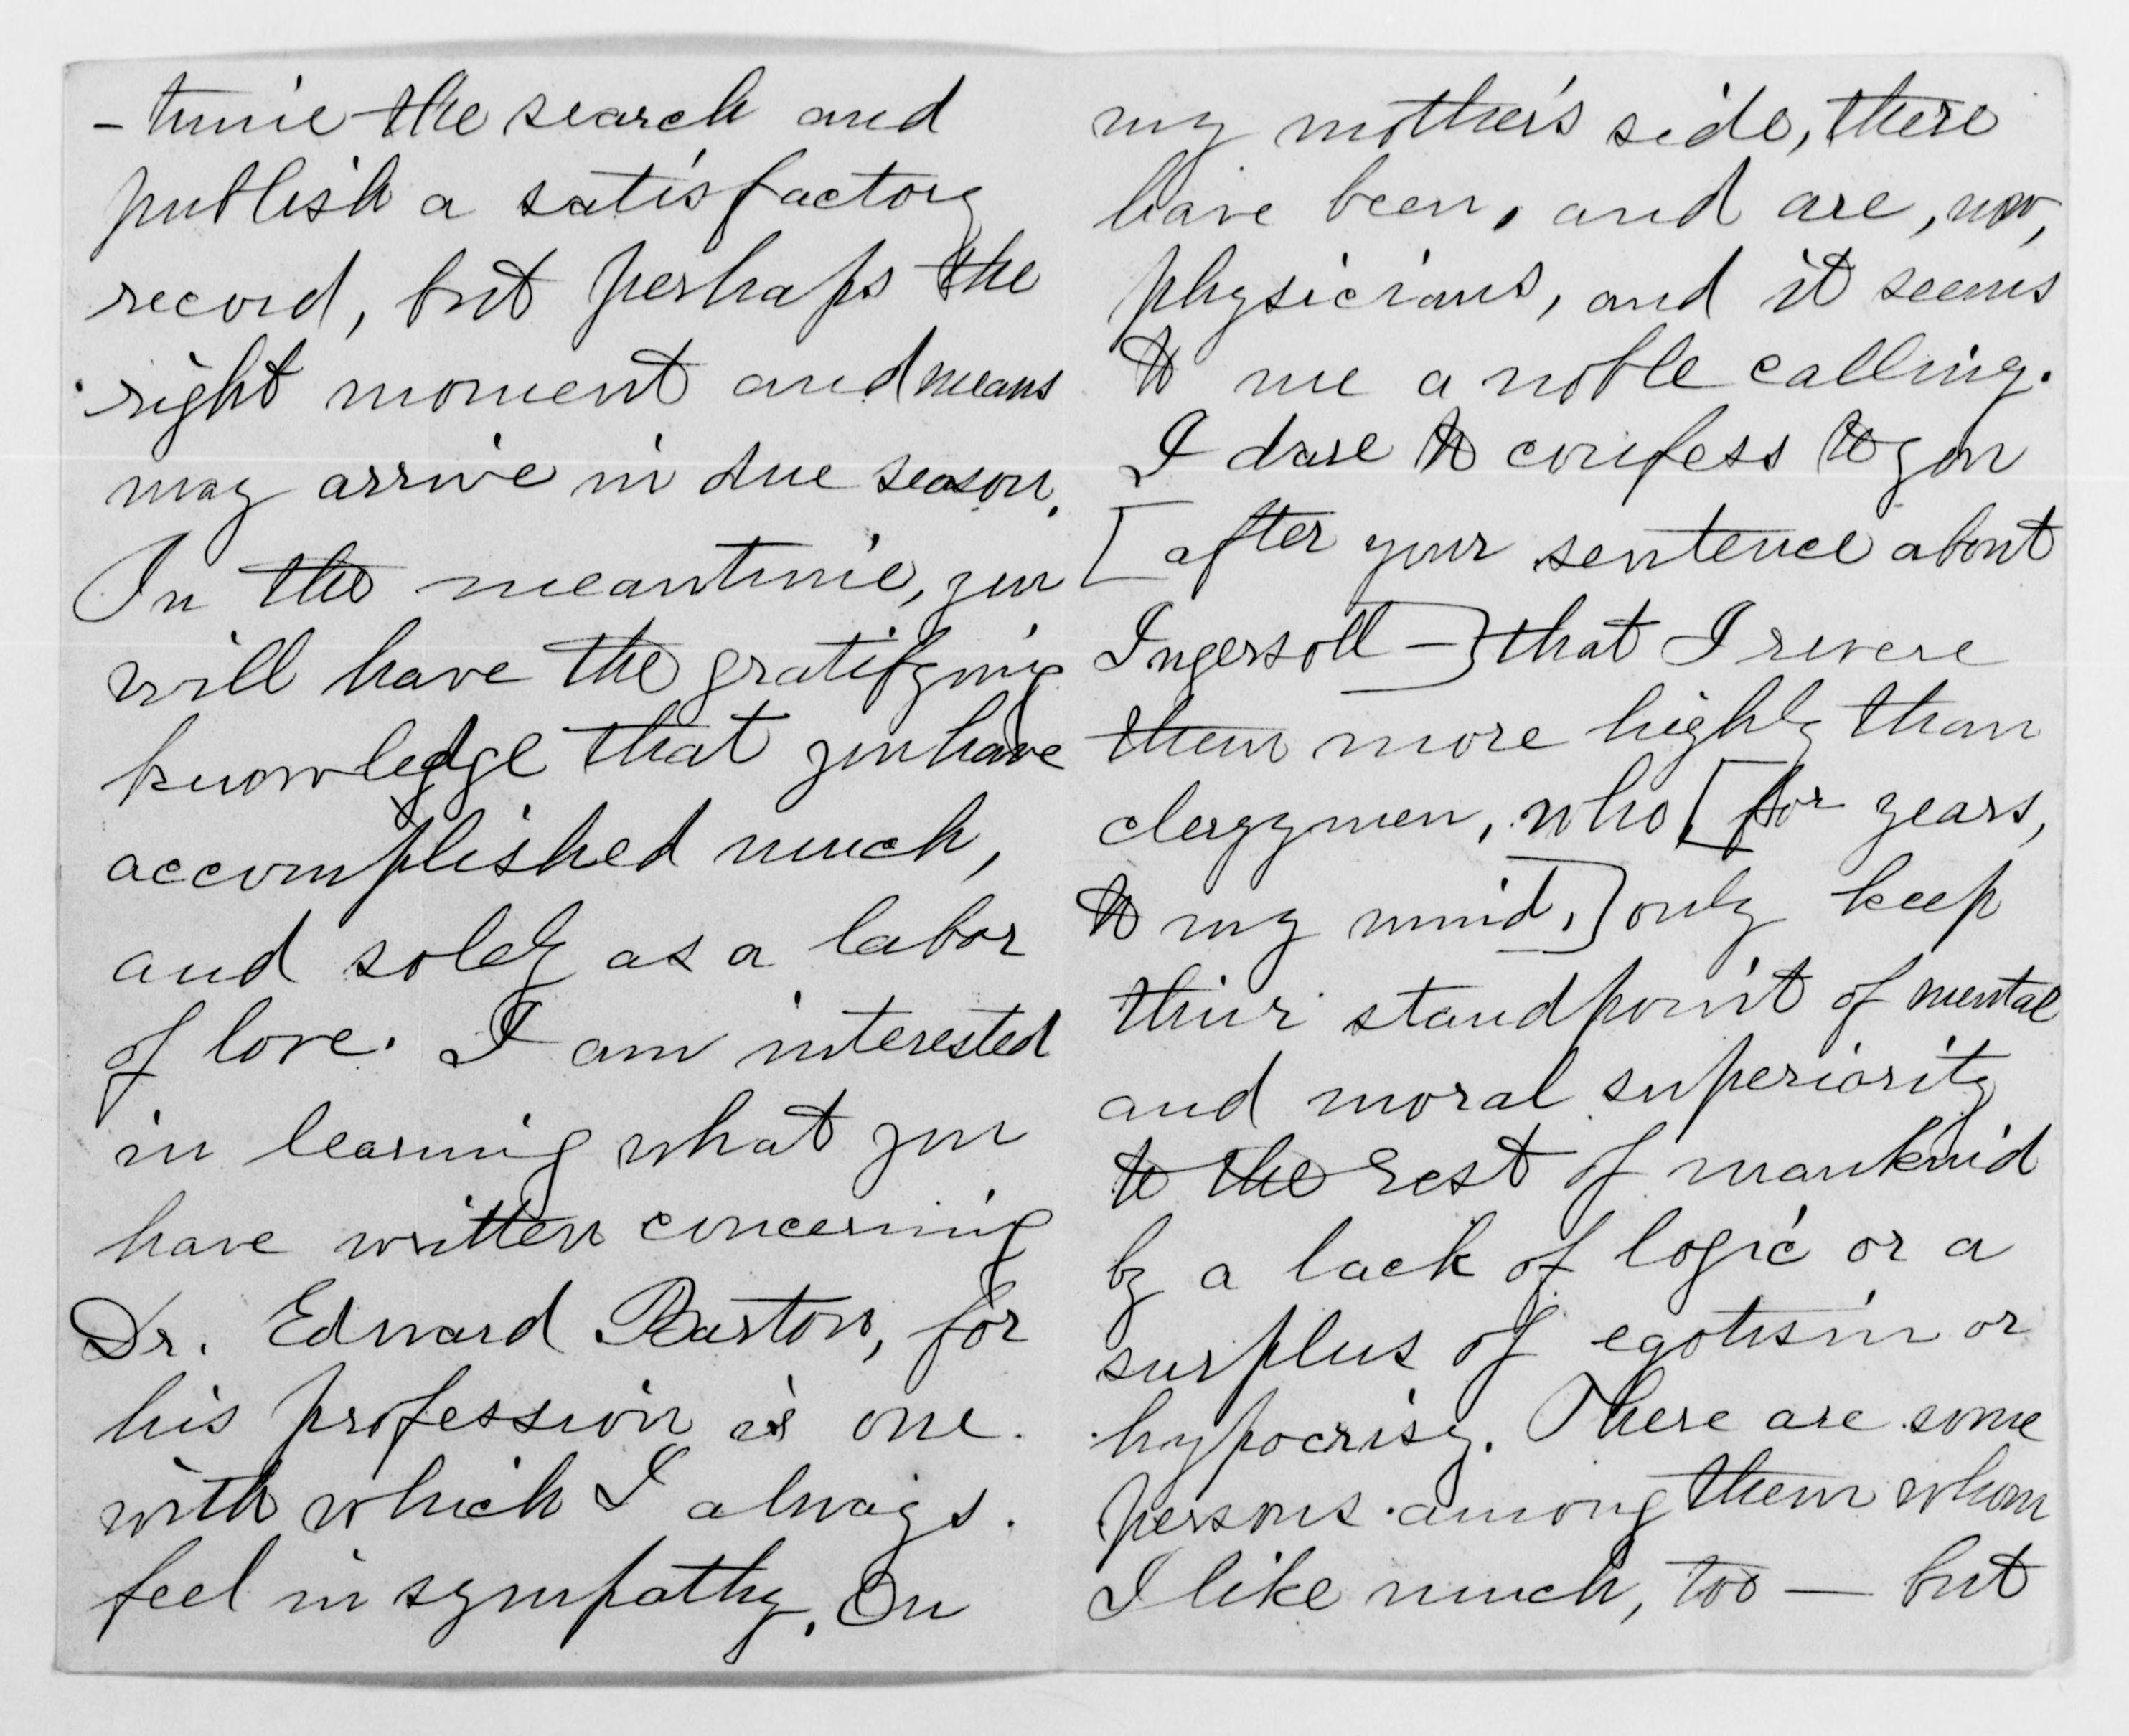 -tinue the search and
publish a satisfactory
record, but perhaps the
right moment and means
may arrive in due season.
In the meantime, you
will have the gratifying
knowledge that you have
accomplished much,
and solely as a labor
of love. I am interested
in learning what you
have written concerning
Dr. Edward Barton, for
his profession is one
with which I always
feel in sympathy. On
my mother's side, there
have been, and are, now,
physicians, and it seems
to me a noble calling.
I dare to confess to you
[after your sentence about
Ingersoll—] that I revere
them more highly than
clergymen, who [for years,
to my mind,] only keep
their standpoint of mental
and moral superiority
to the rest of mankind
by a lack of logic or a
surplus of egotism or
hypocrisy. There are some
persons among them whom
I like much, too — but